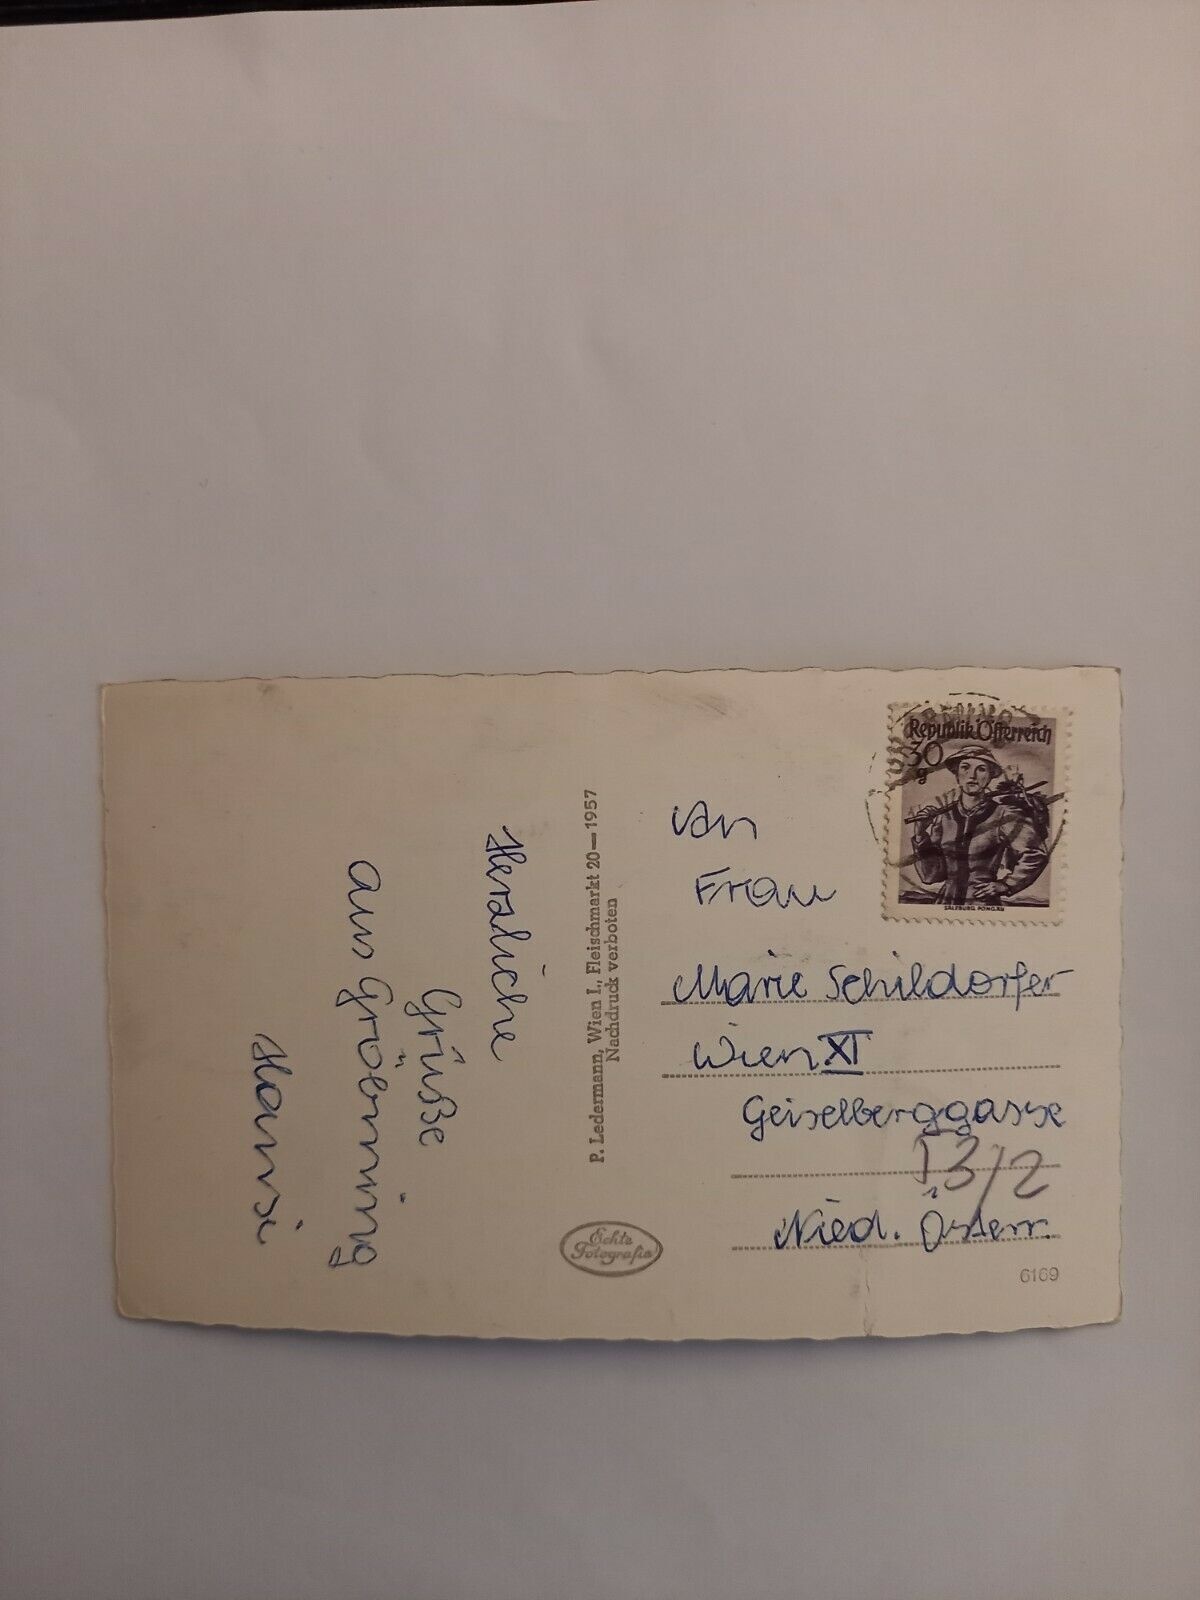 Herzliche
Grüße
aus Gröbming
Hansi
P. Ledermann, Wien I., Fleischmarkt 20—1957
Nachdruck verboten
Echte
Fotografie
Republik Österreich
30
g
SALZBURG, PONGAU
An
Frau
Marie Schildorfer
Wien XI
Geiselberggasse
13/2
Nied. Österr.
6169